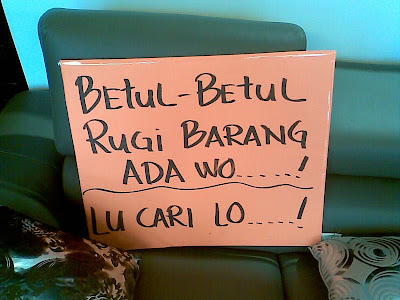 BETUL-BETUL
RUGI BARANG
ADA WO......!
LU CARI LO.....!